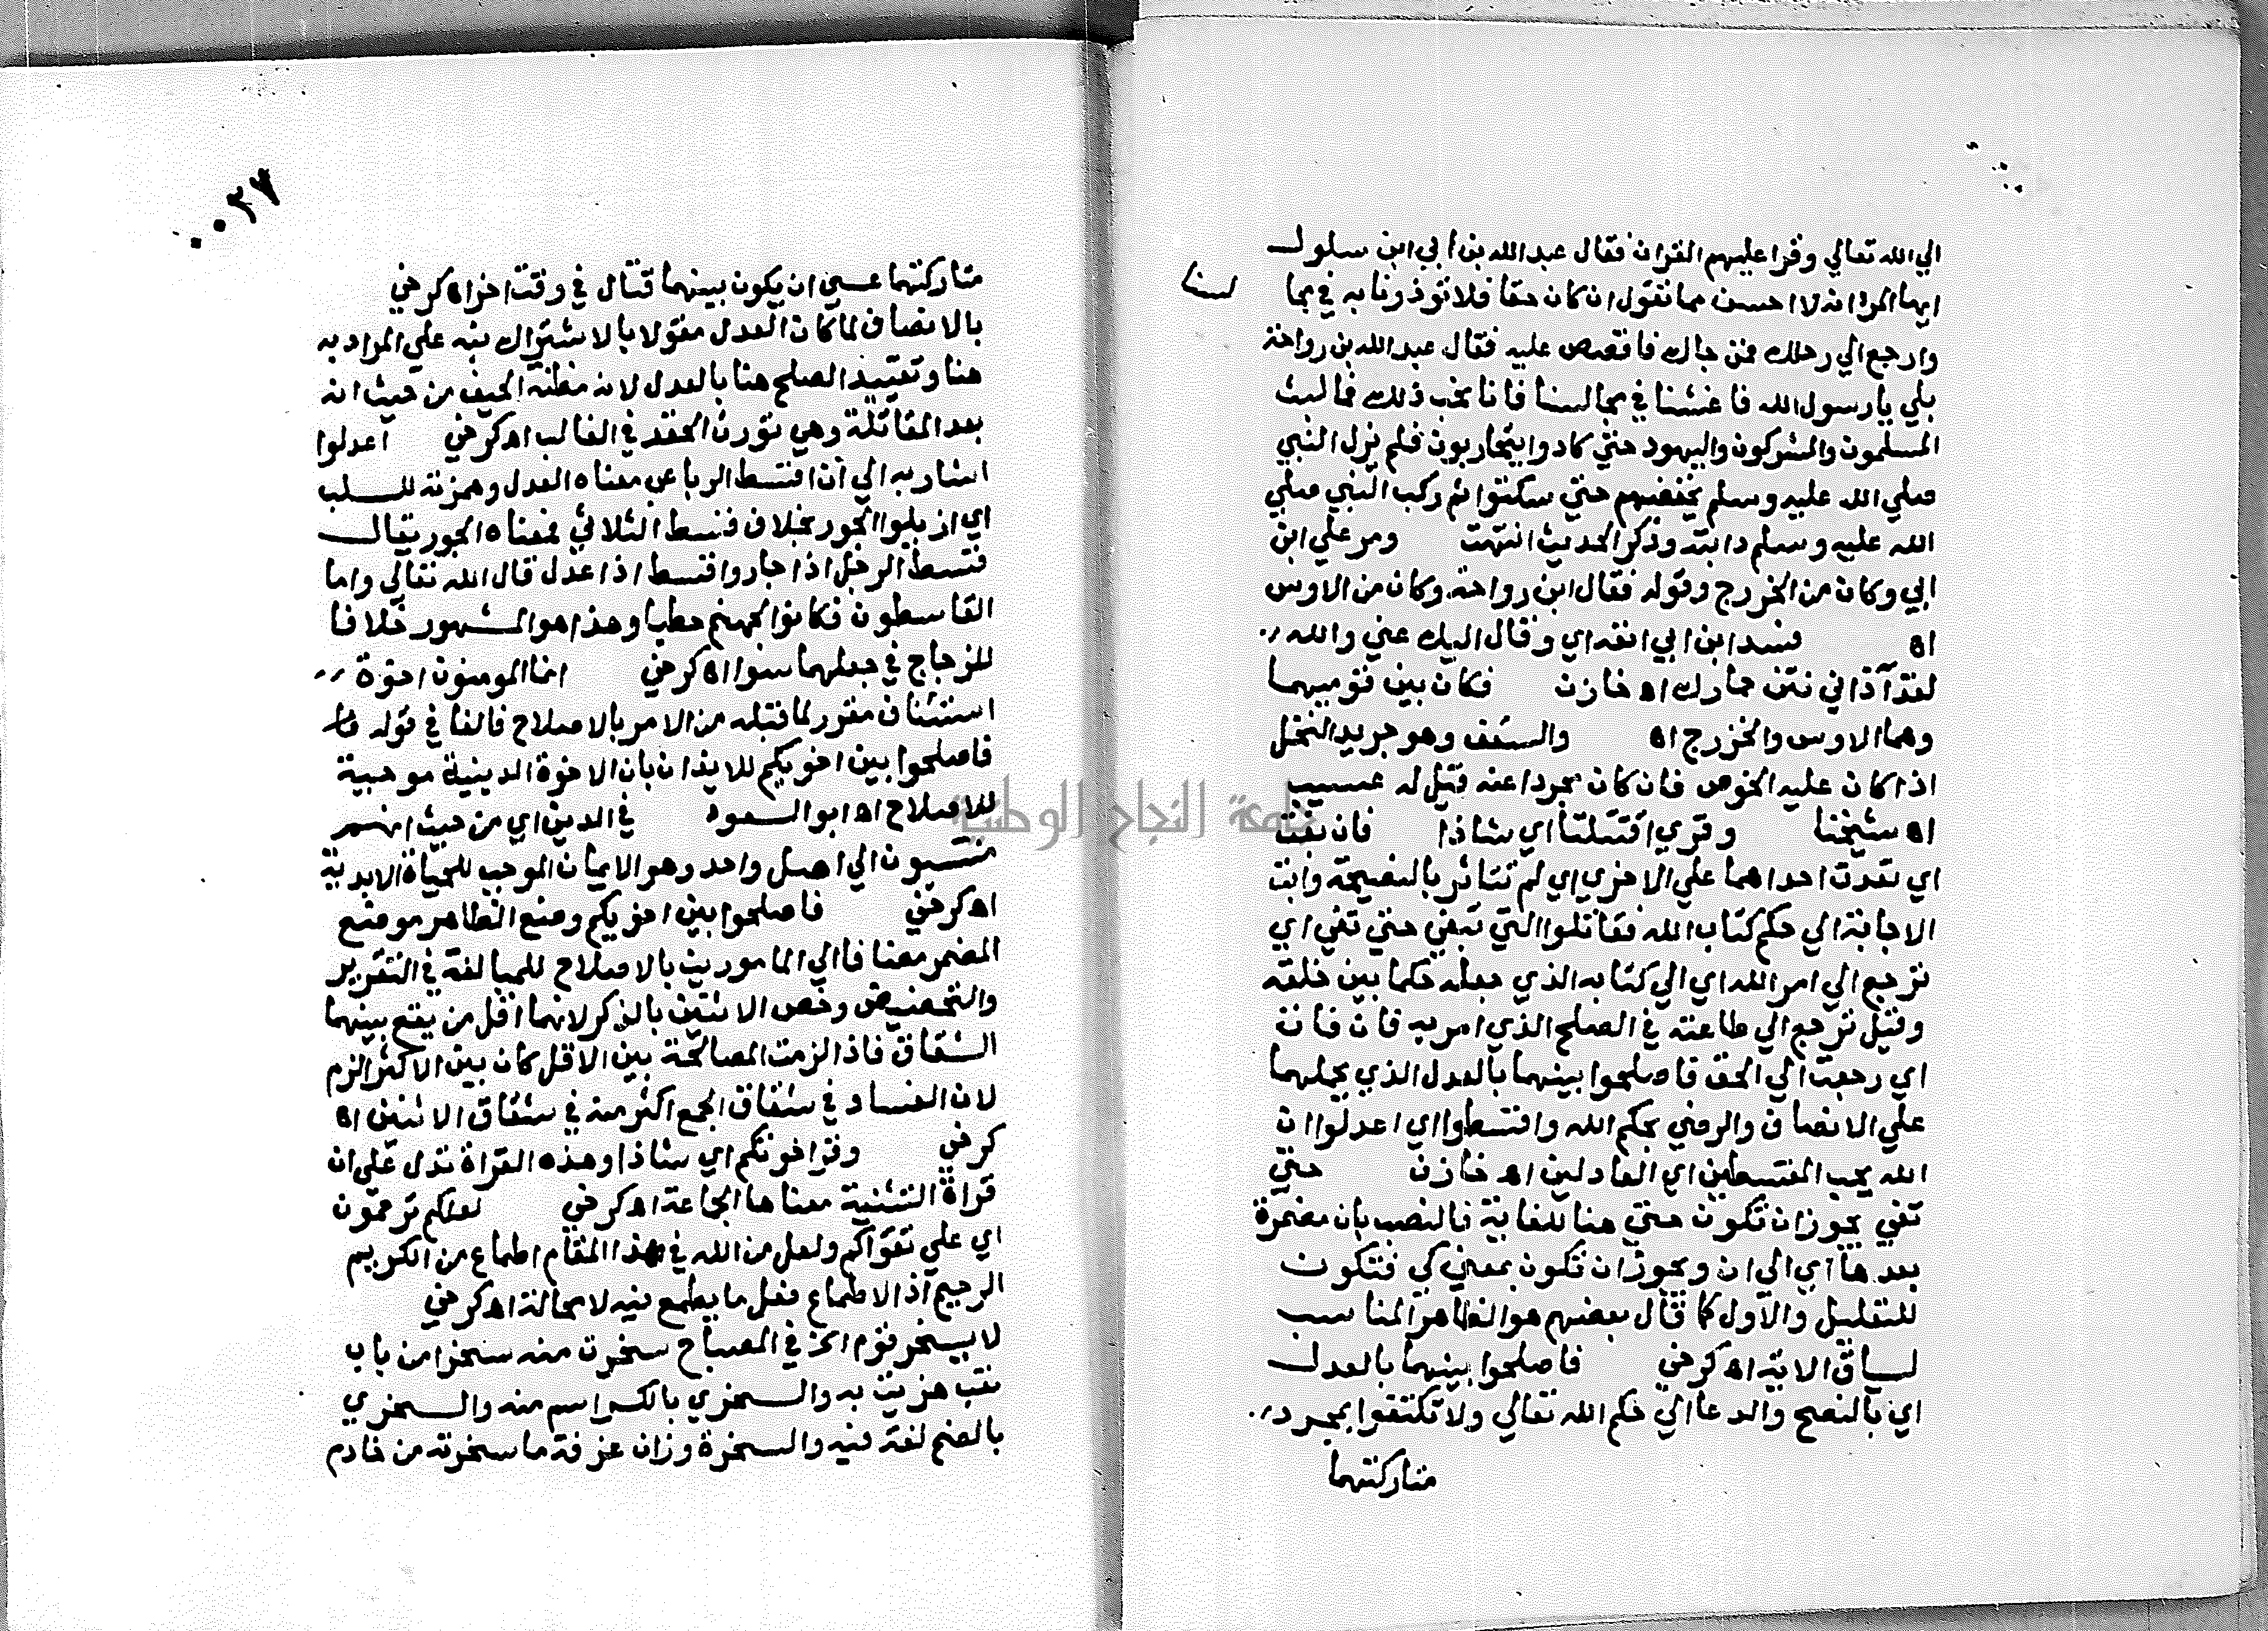 الي الله تعالي وقرا عليهم القران فقال عبد الله بن ابي ابن سلول
ايها المرؤ انه لا احسن مما تقول ان كان حقا فلا توذونا به في مجا لسنا
وارجع الي رحلك فمن جاك فاقصص عليه فقال عبد الله بن رواحة
بلي يا رسول الله فاغشنا في مجالسنا فانا نحب ذلك فما لبث
المسلمون والمشركون واليهود حتي كادوا يتحاربون فلم يزل النبي
صلي الله عليه وسلم يخفضهم حتي سكتوا ثم ركب النبي صلي
الله عليه وسلم دابته وذكر الحديث انتهت ومر علي ابن
ابي وكان من الخزرج وقوله فقال ابن رواحة وكان من الاوس
اه فسد ابن ابي انفه اي وقال اليك عني والله
لقد آذاني نتن حمارك اه خازن فكان بين قوميهما
وهما الاوس والخزرج اه والسعف وهو جريد النخل
اذا كان عليه الخوص فان كان مجردا عنه قيل له عسيب
اه شيخنا وقري اقتتلتا اي شاذا فان بغت
اي تعدت احداهما علي الاخري اي لم تتاثر بالنصيحة وابت
الاجابة الي حكم كتاب الله فقاتلوا التي تبغي حتي تفي اي
ترجع الي امر الله اي الي كتابه الذي جعله حكما بين خلقه
وقيل ترجع الي طاعته في الصلح الذي امر به فان فات
اي رجعت الي الحق فاصلحوا بينهما بالعدل الذي يحملهما
علي الانصاف والرضي بحكم الله واقسطوا اي اعدلوا ان
الله يحب المقسطين اي العادلين اه خازن حتي
تفي يجوز ان تكون حتي هنا للغاية فالنصب بان مضمرة
بعدها اي الي ان ويجوز ان تكون بمعني كي فتكون
للتعليل والاول كما قال بعضهم هو الظاهر المناسب
لسياق الاية اه كرخي فاصلحوا بينهما بالعدل
اي بالنصح والدعا الي حكم الله تعالي ولا تكتفوا بمجرد
متاركتهما
٠٠٢٧
متاركتهما عسي ان يكون بينهما قتال في وقت اخر اه كرخي
بالانصاف لما كان العدل مقولا بالاشتراك نبه علي المراد به
هنا وتقييد الصلح هنا بالعدل لانه مظنة الحيف من حيث انه
بعد المقاتلة وهي تورث الحقد في الغالب اه كرخي اعدلوا
اشار به الي ان اقسط الرباعي معناه العدل وهمزته للسلب
اي ازيلوا الجور بخلاف قسط الثلاثي فمعناه الجور يقال
قسط الرجل اذا جار واقسط اذا عدل قال الله تعالي واما
القاسطون فكانوا لجهنم حطبا وهذا هو المشهور خلافا
للزجاج في جعلهما سوا اه كرخي انما المومنون اخوة
استئناف مقرر لما قبله من الامر بالاصلاح فالفا في قوله
فاصلحوا بين اخويكم للايذان بان الاخوة الدينية موجبة
للاصلاح اه ابو السعود في الدين اي من حيث انهم
منتسبون الي اصل واحد وهو الايمان الموجب للحياة الابدية
اه كرخي فاصلحوا بين اخويكم وضع الظاهر موضع
المضمر مضافا الي المامورين بالاصلاح للمبالغة في التقرير
والتحضيض وخص الاثنين بالذكر لانهما اقل من يقع بينهما
الشقاق فاذا لزمت المصالحة بين الاقل كان بين الاكثر الزم
لان الفساد في شقاق الجمع اكثر منه في شقاق الاثنين اه
كرخي وقرا اخوتكم اي شاذا وهذه القراة تدل علي ان
قراة التثنية معناها الجماعة اه كرخي لعلكم ترحمون
اي علي تقواكم ولعل من الله في هذا المقام اطماع من الكريم
الرحيم اذ الاطماع فعل ما يطمع فيه لا محالة اه كرخي
لا يسخر قوم الخ في المصباح سخرت منه سخرا من باب
تعب هزيت به والسخري بالكسر اسم منه والسخري
بالضم لغة فيه والسخرة وزان غرفة ما سخرته من خادم
جامعة النجاح الوطنية